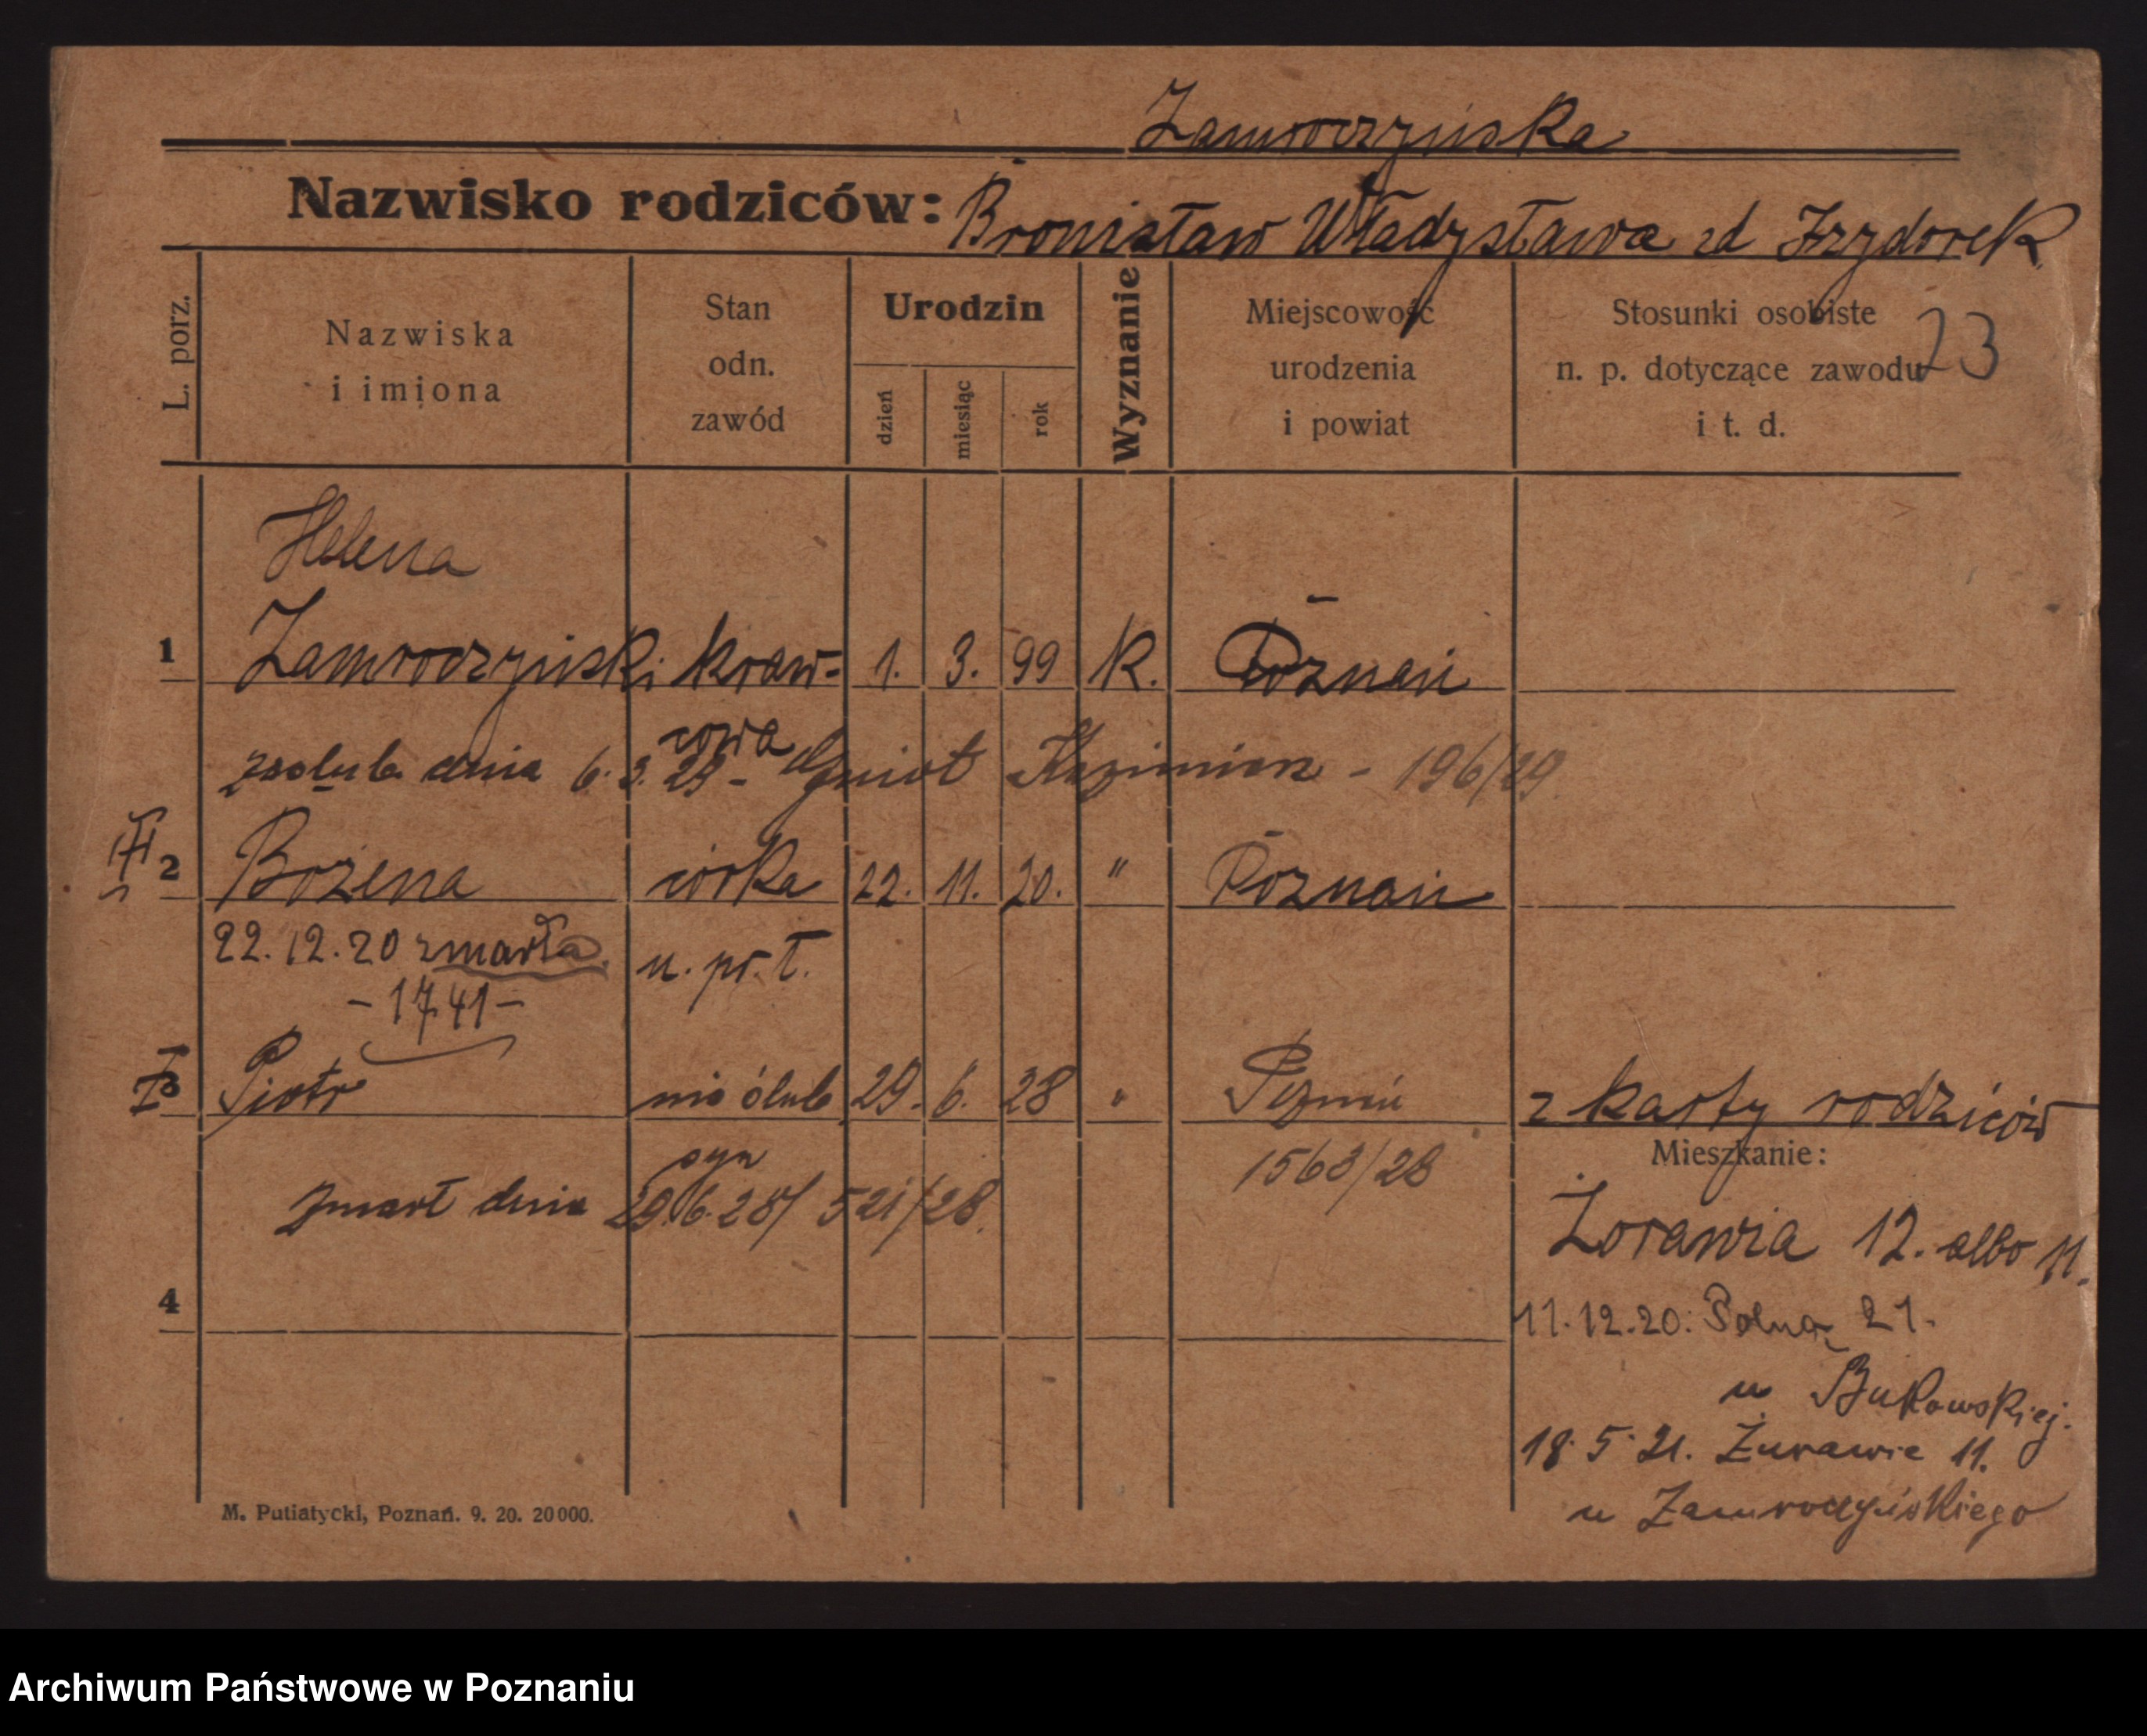 Zamroczyńska
Nazwisko rodziców: Bronisław Władysława zd Frydorek
L. porz.
Nazwiska i imiona
Stan odn. zawód
Urodzin
dzień
miesiąc
rok
Wyznanie
Miejscowość urodzenia i powiat
Stosunki osobiste n. p. dotyczące zawodu i t. d.
23
Helena
1 Zamroczyński kraw= 1. 3. 99 K. Poznań
cowa
zaślub. dnia 6.3.29 - Kazimierz - 196/29
2 Bożena córka 22. 11. 20. " Poznań
22.12.20 zmarła. n. pr. ł.
- 1741 -
3 Piotr nie ślub 29. 6. 28 " Poznań z karty rodziców
syn 1563/28
zmarł dnia 29.6.28/ 521/28.
Mieszkanie:
Żórawia 12. albo 11.
4
11.12.20: Polna 21.
u Bukowskiej.
18.5.21. Żurawie 11.
u Zamroczyńskiego
M. Putiatycki, Poznań. 9. 20. 20000.
Archiwum Państwowe w Poznaniu